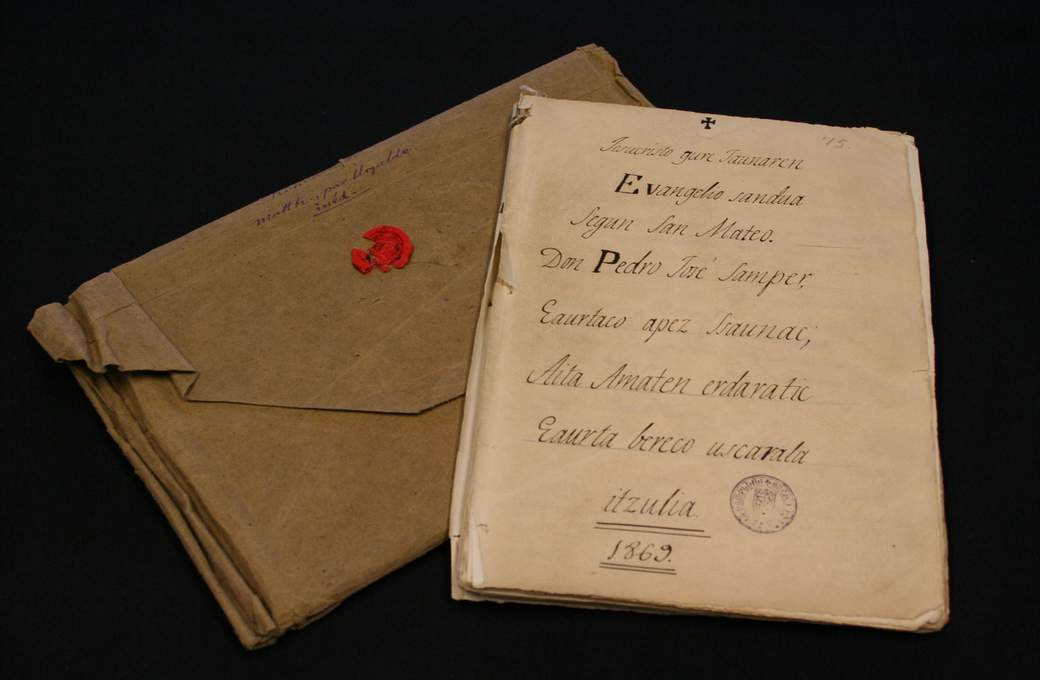 matth., par Uizalde
inéd.
75.
Jesucristo gure Jaunaren
Evangelio sandua
Segun San Mateo.
Don Pedro José Samper,
Eaurtaco apez Jraunac,
Aita Amaten erdaratic
Eaurta bereco uscarala
itzulia
1869.